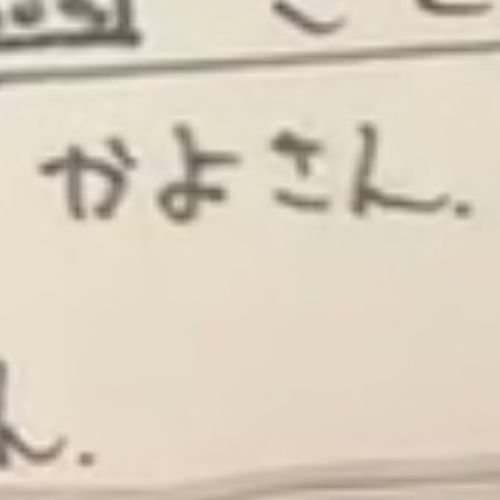 かよさん.
ん.